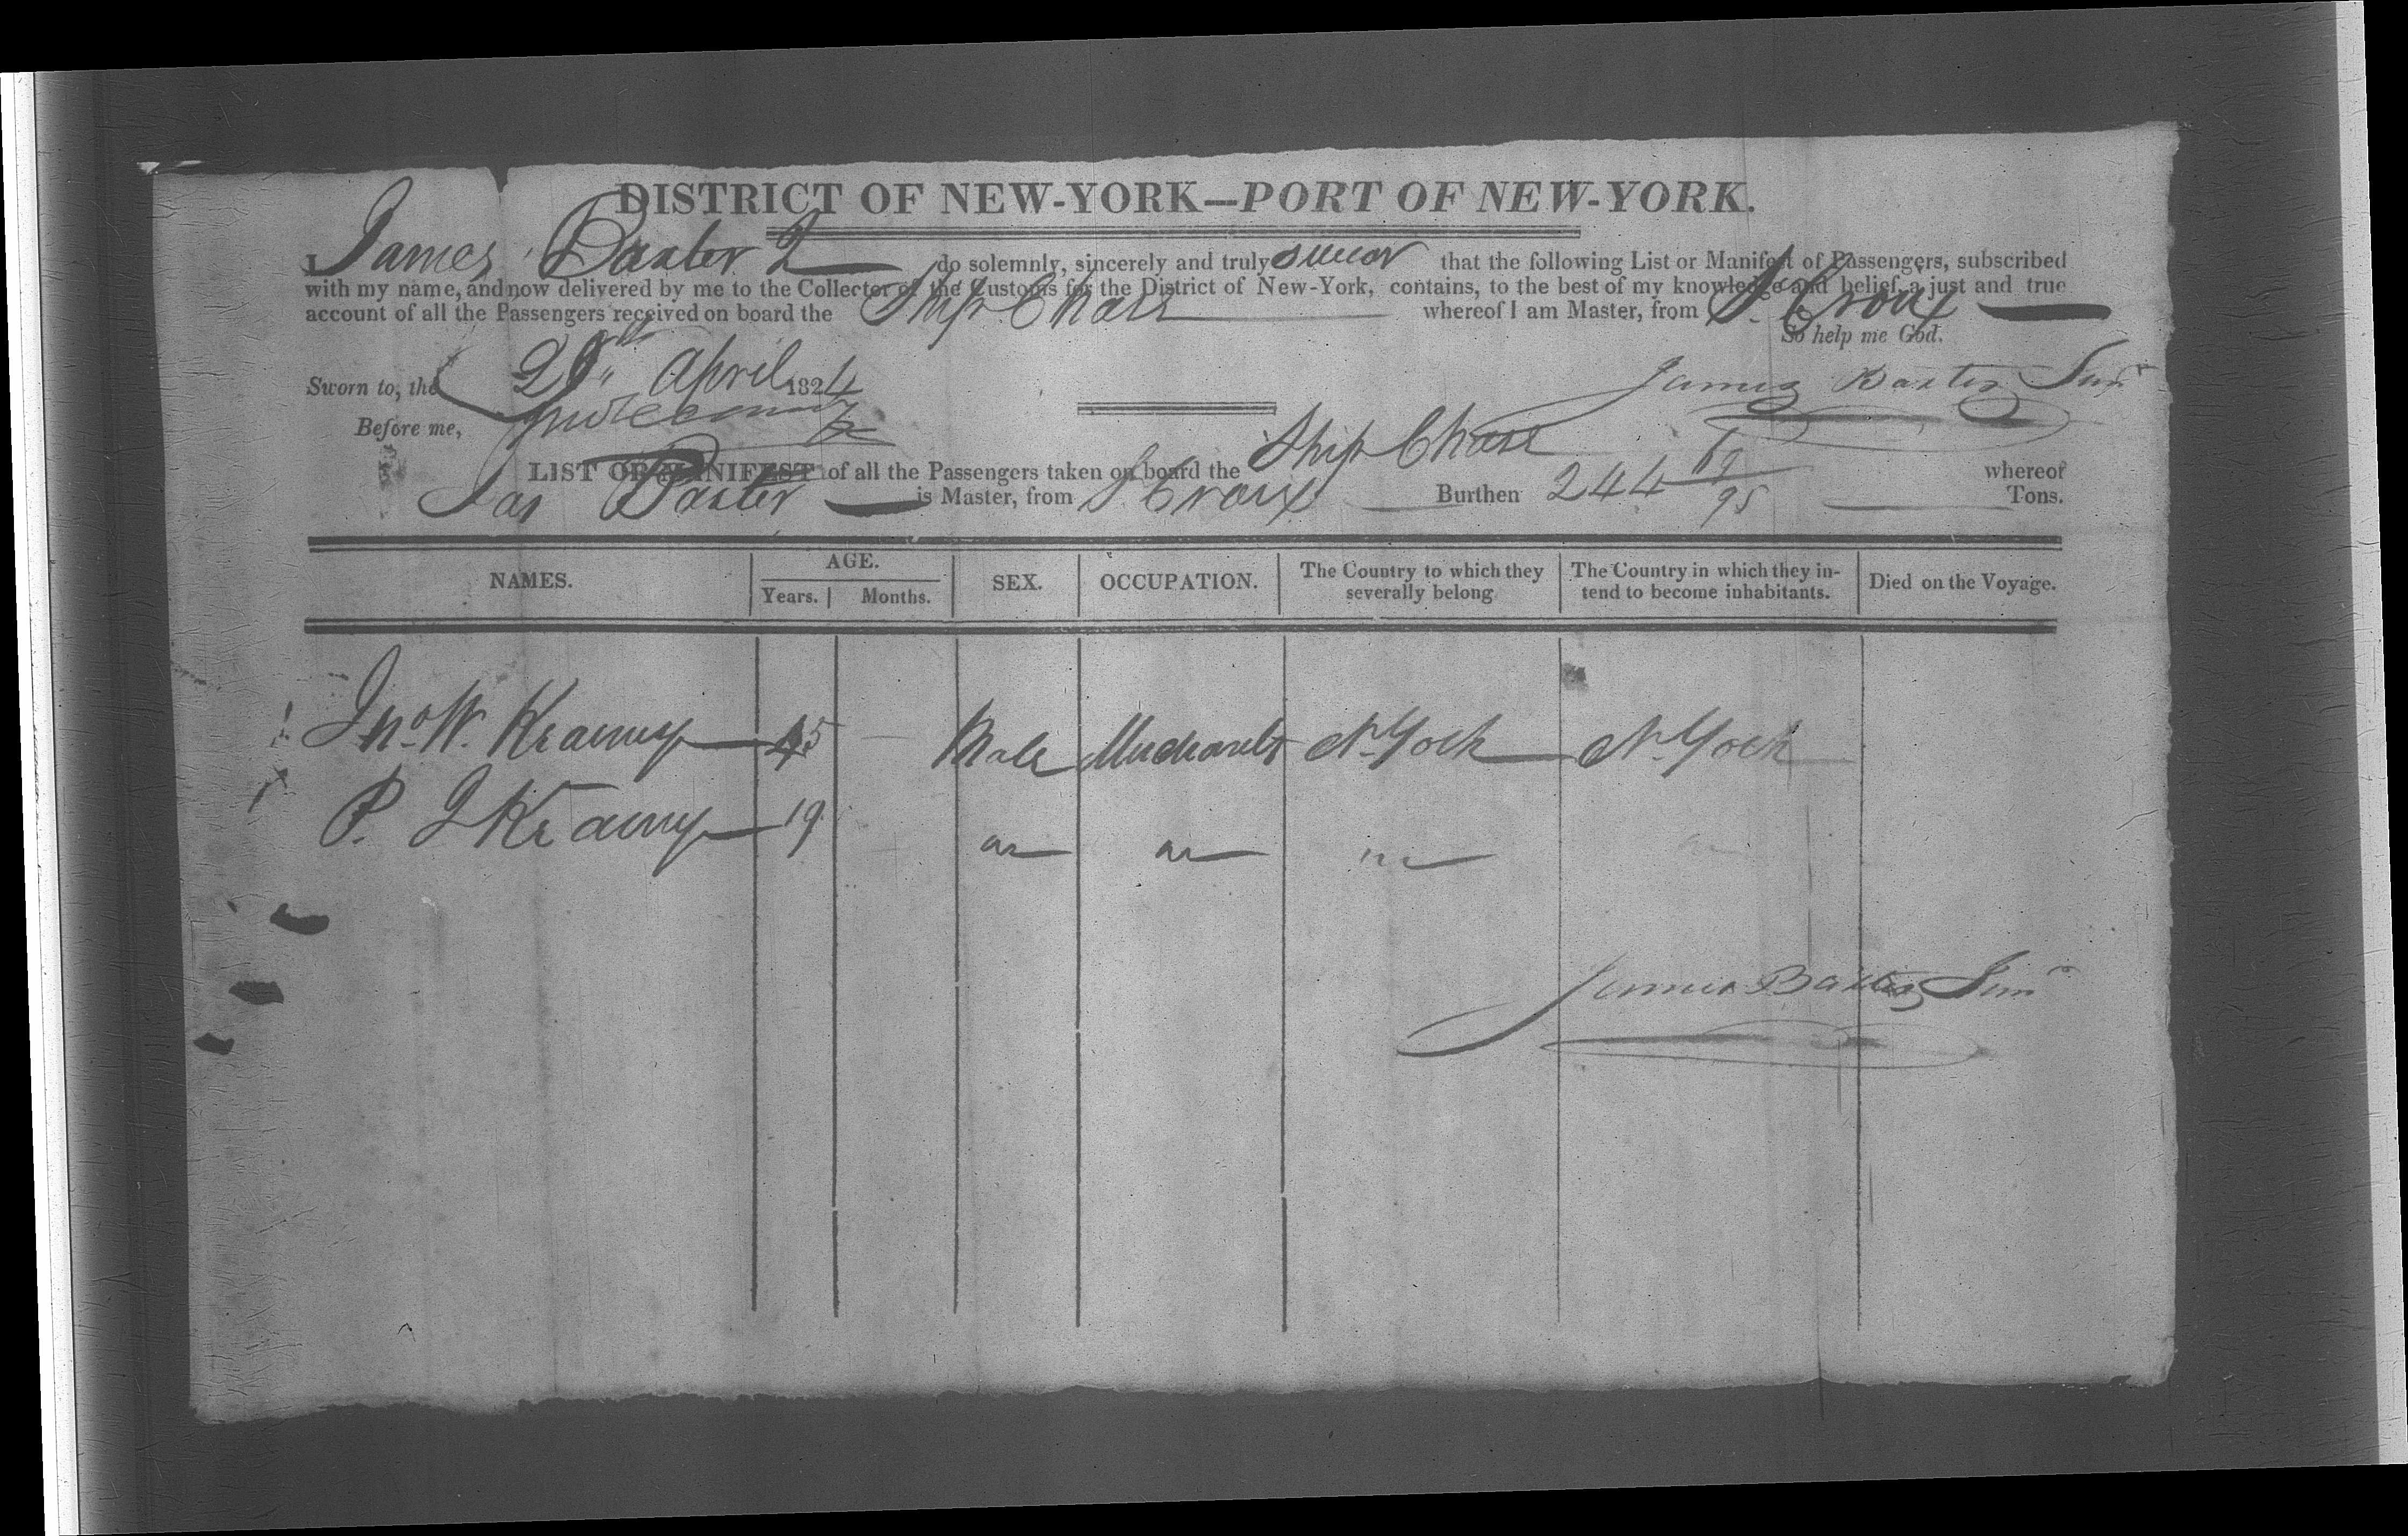 DISTRICT OF NEW-YORK—PORT OF NEW-YORK.
I James Baxter 2 do solemnly, sincerely and truly swear that the following List or Manifest of Passengers, subscribed
with my name, and now delivered by me to the Collector of the Customs for the District of New-York, contains, to the best of my knowledge and belief, a just and true
account of all the Passengers received on board the Ship Chase whereof I am Master, from St Croix
So help me God.
Sworn to, the April 1824 James Baxter Junr
Before me,
LIST OR MANIFEST of all the Passengers taken on board the Ship Chase whereof
Jas Baxter is Master, from St Croix Burthen 244 69/95 Tons.
NAMES. AGE. SEX. OCCUPATION. The Country to which they severally belong. The Country in which they intend to become inhabitants. Died on the Voyage.
Years. Months.
Jno. W. Kearney 45 Male Merchant N. York N. York
P. J Kearney 19 do do do do
James Baxter Junr